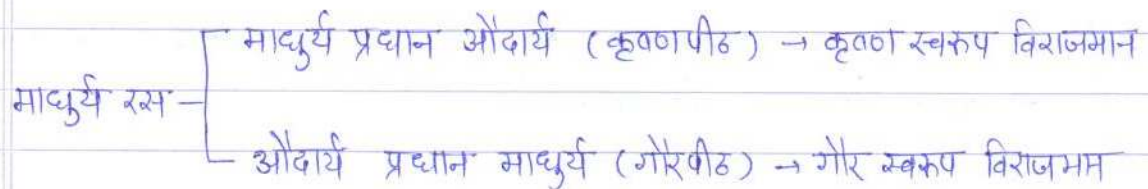 माधुर्य प्रधान औदार्य (कृष्णपीठ) → कृष्ण स्वरूप विराजमान
माधुर्य रस -
औदार्य प्रधान माधुर्य (गौरपीठ) → गौर स्वरूप विराजमान